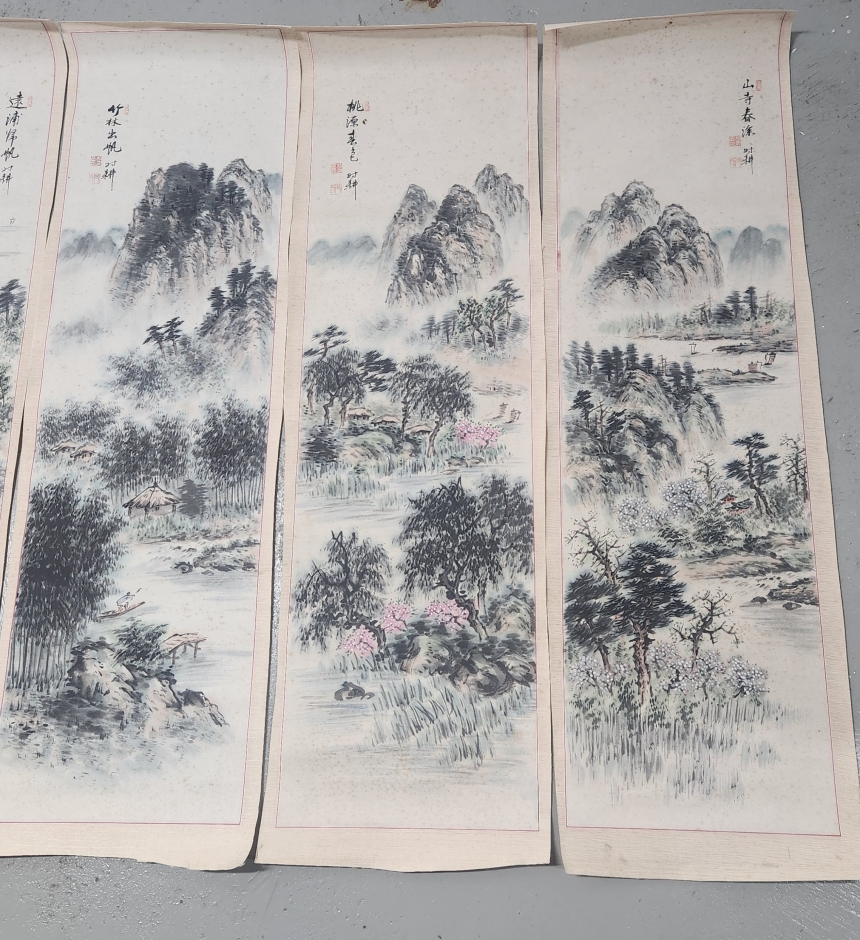 山寺春深
時耕
桃源春色
時耕
竹林出帆
時耕
遠浦帰帆
時耕